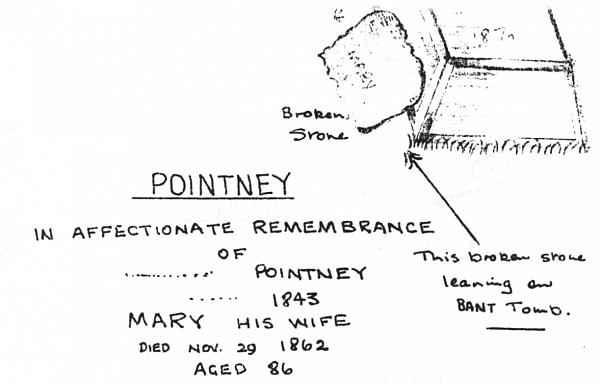 187
Broken
Stone
POINTNEY
IN AFFECTIONATE REMEMBRANCE
OF
.............. POINTNEY
...... 1843
MARY HIS WIFE
DIED NOV. 29 1862
AGED 86
This broken stone
leaning on
BANT Tomb.